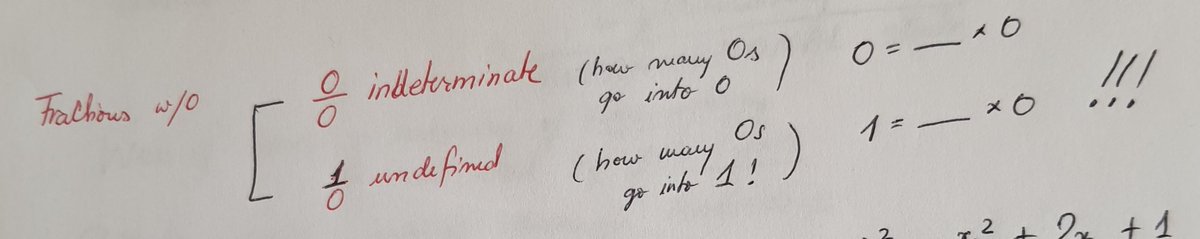 Fractions w/0
0/0 indeterminate (how many 0s go into 0) 0 = __ × 0
1/0 undefined (how many 0s go into 1!) 1 = __ × 0 !!!
x² + 2x + 1